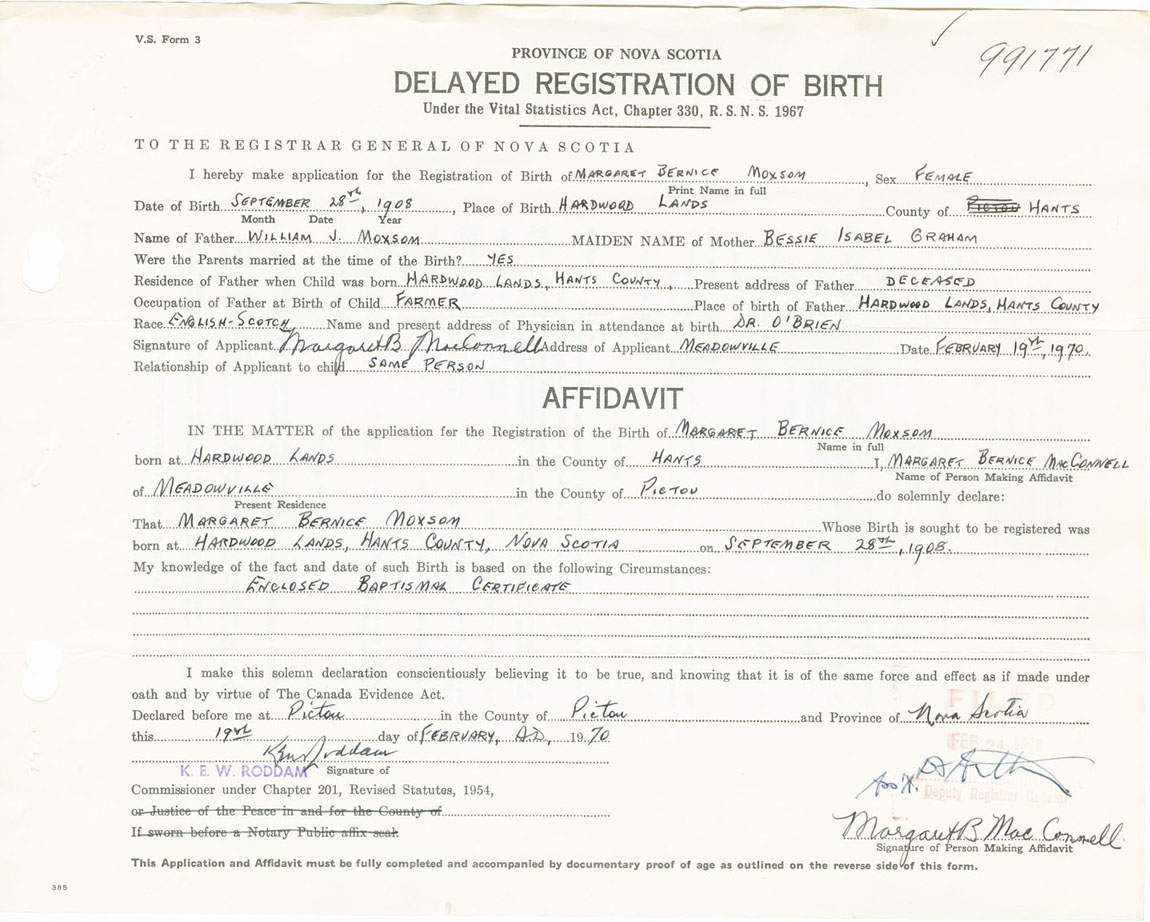 V.S. Form 3
991771
PROVINCE OF NOVA SCOTIA
DELAYED REGISTRATION OF BIRTH
Under the Vital Statistics Act, Chapter 330, R. S. N. S. 1967
TO THE REGISTRAR GENERAL OF NOVA SCOTIA
I hereby make application for the Registration of Birth of MARGARET BERNICE MOXSOM, Sex FEMALE
Print Name in full
Date of Birth SEPTEMBER 28TH, 1908, Place of Birth HARDWOOD LANDS County of PICTOU HANTS
Month Date Year
Name of Father WILLIAM J. MOXSOM MAIDEN NAME of Mother BESSIE ISABEL GRAHAM
Were the Parents married at the time of the Birth? YES
Residence of Father when Child was born HARDWOOD LANDS, HANTS COUNTY, Present address of Father DECEASED
Occupation of Father at Birth of Child FARMER Place of birth of Father HARDWOOD LANDS, HANTS COUNTY
Race ENGLISH-SCOTCH, Name and present address of Physician in attendance at birth DR. O'BRIEN
Signature of Applicant Margaret B MacConnell Address of Applicant MEADOWVILLE Date FEBRUARY 19TH, 1970.
Relationship of Applicant to child SAME PERSON
AFFIDAVIT
IN THE MATTER of the application for the Registration of the Birth of MARGARET BERNICE MOXSOM
Name in full
born at HARDWOOD LANDS in the County of HANTS I, MARGARET BERNICE MACCONNELL
Name of Person Making Affidavit
of MEADOWVILLE in the County of PICTOU do solemnly declare:
Present Residence
That MARGARET BERNICE MOXSOM Whose Birth is sought to be registered was
born at HARDWOOD LANDS, HANTS COUNTY, NOVA SCOTIA on SEPTEMBER 28TH, 1908.
My knowledge of the fact and date of such Birth is based on the following Circumstances:
ENCLOSED BAPTISMAL CERTIFICATE
I make this solemn declaration conscientiously believing it to be true, and knowing that it is of the same force and effect as if made under
oath and by virtue of The Canada Evidence Act.
FILED
Declared before me at Pictou in the County of Pictou and Province of Nova Scotia
this 19th day of FEBRUARY, A.D., 1970
FEB 24
Ken Roddam
K. E. W. RODDAM Signature of
Deputy Registrar General
Commissioner under Chapter 201, Revised Statutes, 1954,
or Justice of the Peace in and for the County of
If sworn before a Notary Public affix seal.
Margaret B MacConnell
Signature of Person Making Affidavit
This Application and Affidavit must be fully completed and accompanied by documentary proof of age as outlined on the reverse side of this form.
385